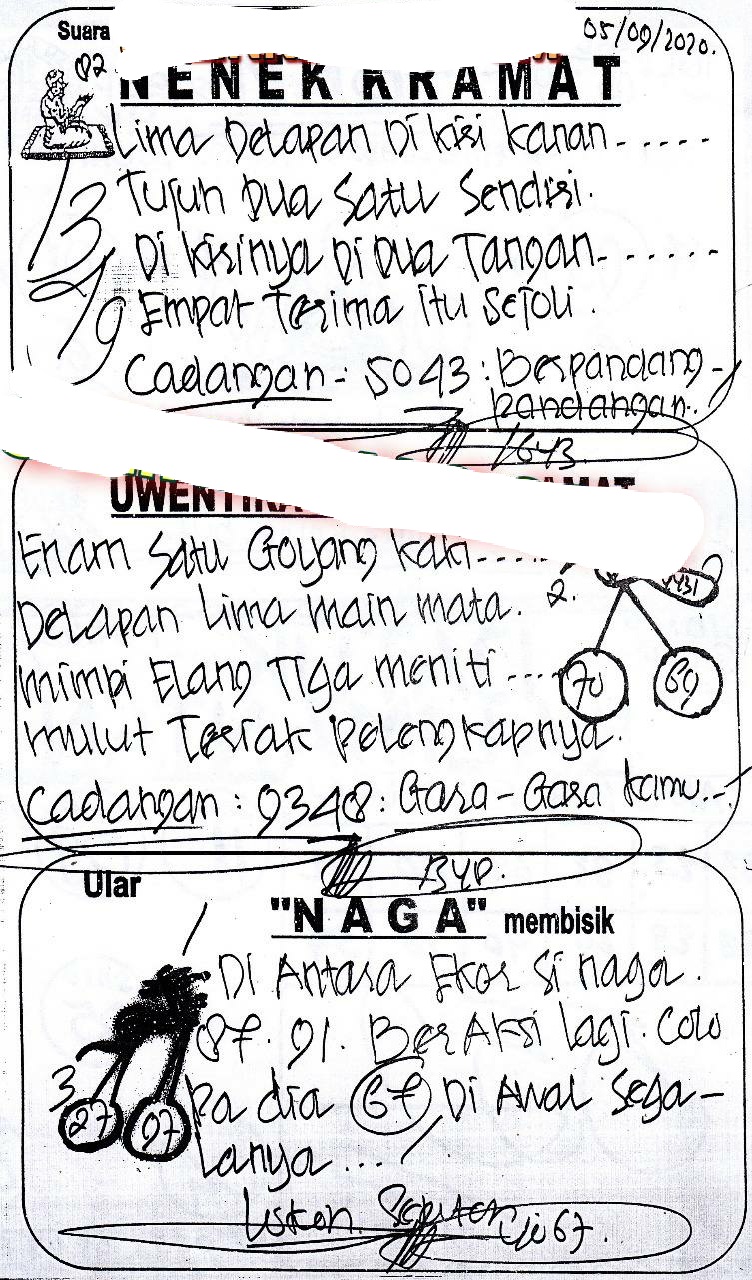 Suara
05/09/2020.
NENEK KRAMAT
Lima Delapan Di kisi kanan.....
Tujuh Dua Satu Sendiri.
Di kirinya Di Dua Tangan......
Empat Terima itu Sejoli.
Cadangan: 5043: Berpandang-
pandangan.
1643.
Enam Satu Goyang kaki.....
Delapan Lima main mata.
2.
mimpi Elang Tiga meniti....
70
69
mulut Teriak Pelengkapnya.
Cadangan: 9348: Gara-Gara kamu..
Ular
"NAGA" membisik
Di Antara Ekor Si naga.
87. 91. BerAksi lagi. Colo
3
27
97
Pa dia 67 Di Awal Sega-
lanya...